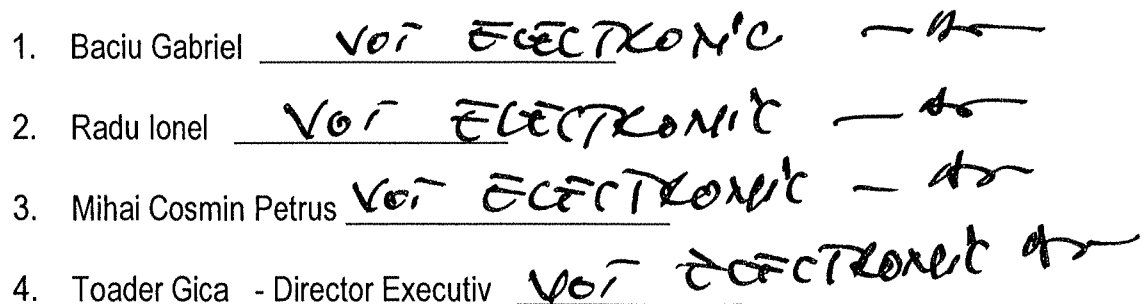 1. Baciu Gabriel VOT ELECTRONIC
2. Radu Ionel VOT ELECTRONIC
3. Mihai Cosmin Petrus VOT ELECTRONIC
4. Toader Gica - Director Executiv VOT ELECTRONIC